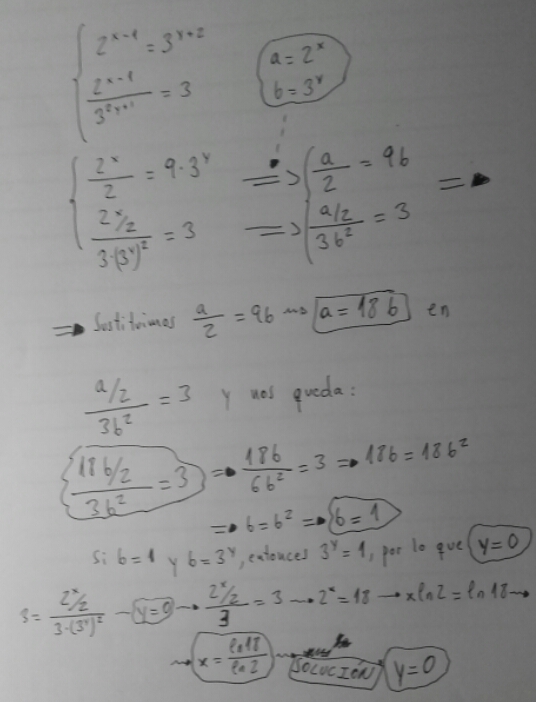 2^(x-1) = 3^(y+2)
2^(x-1) / 3^(2y+1) = 3
a = 2^x
b = 3^y
2^x / 2 = 9·3^y ⇒ a / 2 = 9b ⇒
2^x/2 / 3·(3^y)^2 = 3 ⇒ a/2 / 3b^2 = 3
⇒ Sustituimos a / 2 = 9b → a = 18b en
a/2 / 3b^2 = 3 y nos queda:
18b/2 / 3b^2 = 3 ⇒ 18b / 6b^2 = 3 ⇒ 18b = 18b^2
⇒ b = b^2 ⇒ b = 1
Si b=1 y b=3^y, entonces 3^y = 1, por lo que y=0
3 = 2^x/2 / 3·(3^y)^2 → y=0 → 2^x/2 / 3 = 3 → 2^x = 18 → x ln2 = ln18 →
→ x = ln18 / ln2 →
SOLUCIÓN y=0